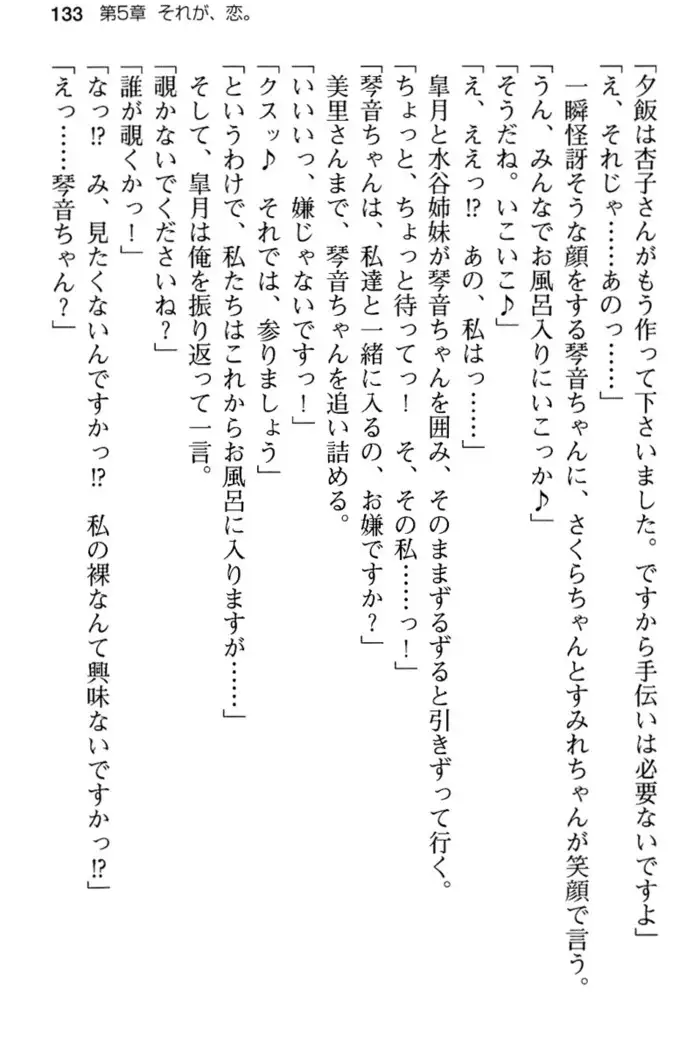 133 第5章 それが、恋。
「夕飯は杏子さんがもう作って下さいました。ですから手伝いは必要ないですよ」
「え、それじゃ……あのっ……」
一瞬怪訝そうな顔をする琴音ちゃんに、さくらちゃんとすみれちゃんが笑顔で言う。
「うん、みんなでお風呂入りにいこっか♪」
「そうだね。いこいこ♪」
「え、ええっ!? あの、私はっ……」
皐月と水谷姉妹が琴音ちゃんを囲み、そのままずるずると引きずって行く。
「ちょっと、ちょっと待ってっ! そ、その私……っ!」
「琴音ちゃんは、私達と一緒に入るの、お嫌ですか?」
美里さんまで、琴音ちゃんを追い詰める。
「いいいっ、嫌じゃないですっ!」
「クスッ♪ それでは、参りましょう」
「というわけで、私たちはこれからお風呂に入りますが……」
そして、皐月は俺を振り返って一言。
「覗かないでくださいね?」
「誰が覗くかっ!」
「なっ!? み、見たくないんですかっ!? 私の裸なんて興味ないですかっ!?」
「えっ……琴音ちゃん?」